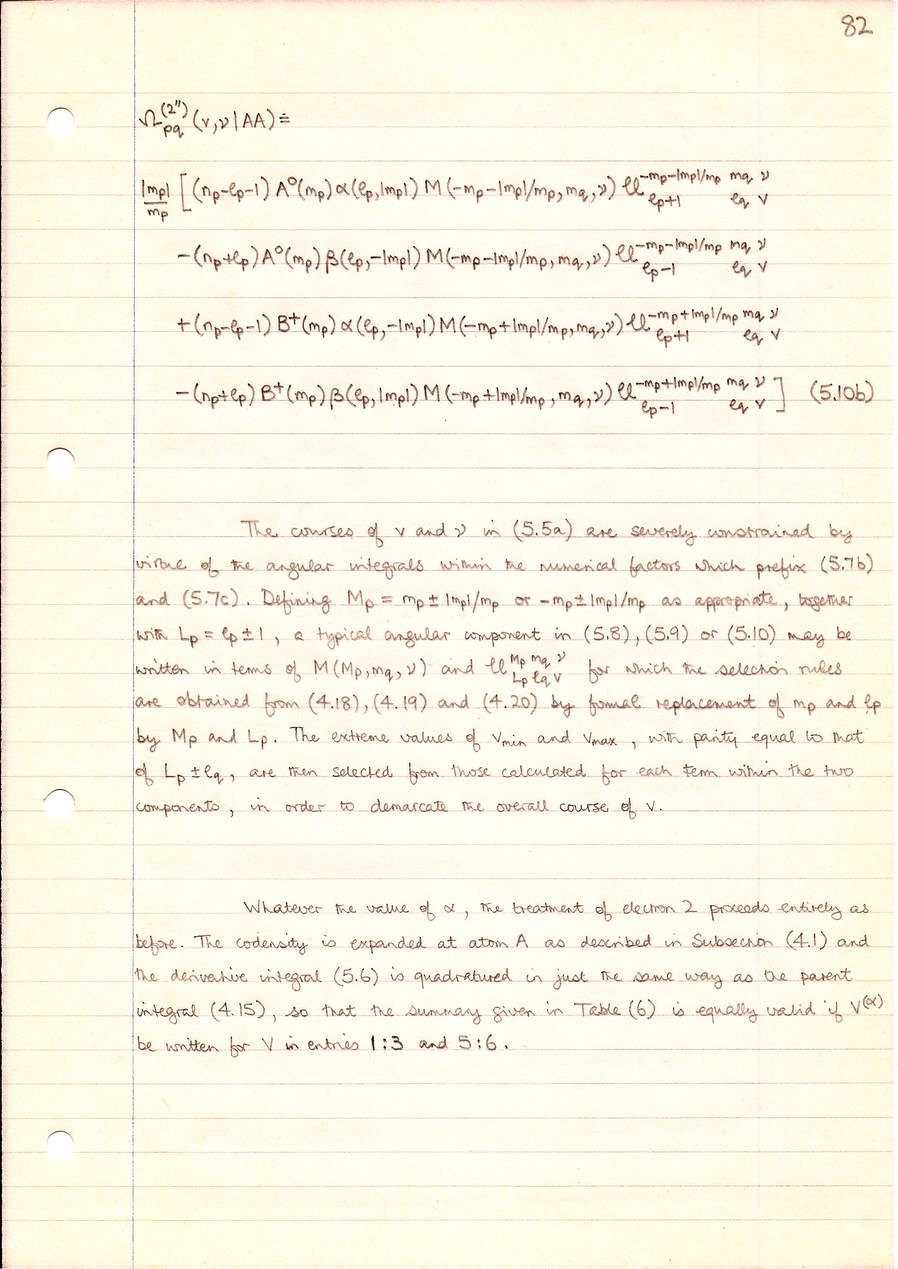 82
Ω_pq^(2″) (v,ν|AA) ≐
|mp|/mp [(np-ℓp-1) A°(mp) α(ℓp,|mp|) M(-mp-|mp|/mp, mq, ν) 𝓤^{-mp-|mp|/mp mq ν}_{ℓp+1 ℓq v}
-(np+ℓp) A°(mp) β(ℓp,-|mp|) M(-mp-|mp|/mp, mq, ν) 𝓤^{-mp-|mp|/mp mq ν}_{ℓp-1 ℓq v}
+(np-ℓp-1) B⁺(mp) α(ℓp,-|mp|) M(-mp+|mp|/mp, mq, ν) 𝓤^{-mp+|mp|/mp mq ν}_{ℓp+1 ℓq v}
-(np+ℓp) B⁺(mp) β(ℓp,|mp|) M(-mp+|mp|/mp, mq, ν) 𝓤^{-mp+|mp|/mp mq ν}_{ℓp-1 ℓq v}] (5.10b)
The courses of v and ν in (5.5a) are severely constrained by
virtue of the angular integrals within the numerical factors which prefix (5.7b)
and (5.7c). Defining Mp = mp ± |mp|/mp or -mp ± |mp|/mp as appropriate, together
with Lp = ℓp ± 1, a typical angular component in (5.8), (5.9) or (5.10) may be
written in terms of M(Mp, mq, ν) and 𝓤^{Mp mq ν}_{Lp ℓq v} for which the selection rules
are obtained from (4.18), (4.19) and (4.20) by formal replacement of mp and ℓp
by Mp and Lp. The extreme values of v_min and v_max, with parity equal to that
of Lp ± ℓq, are then selected from those calculated for each term within the two
components, in order to demarcate the overall course of v.
Whatever the value of α, the treatment of electron 2 proceeds entirely as
before. The codensity is expanded at atom A as described in Subsection (4.1) and
the derivative integral (5.6) is quadratured in just the same way as the parent
integral (4.15), so that the summary given in Table (6) is equally valid if V^(α)
be written for V in entries 1:3 and 5:6.